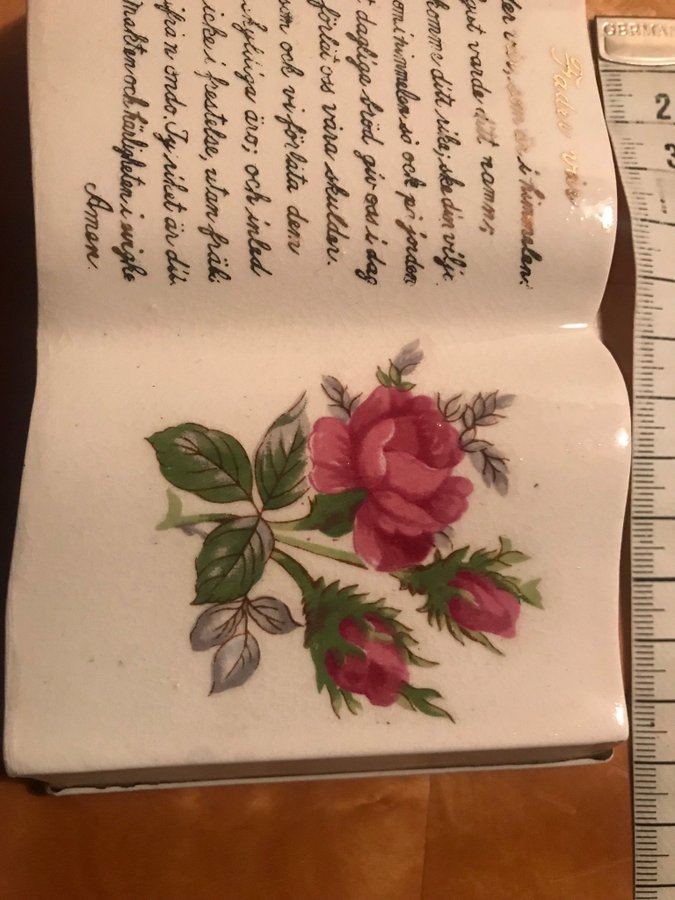 Fader vår
der vår, som är i himmelen:
gut varde ditt namn;
komme ditt rike; ske din vilje
om i himmelen så ock på jorden
t dagliga bröd giv oss i dag
förlåt oss våra skulder.
som och vi förlåta dem
skyldiga äro; och inled
icke i frestelse, utan fräls
ifrån ondo. Ty riket är ditt
makten och härligheten i evighe
Amen.
GERMAN
2
3